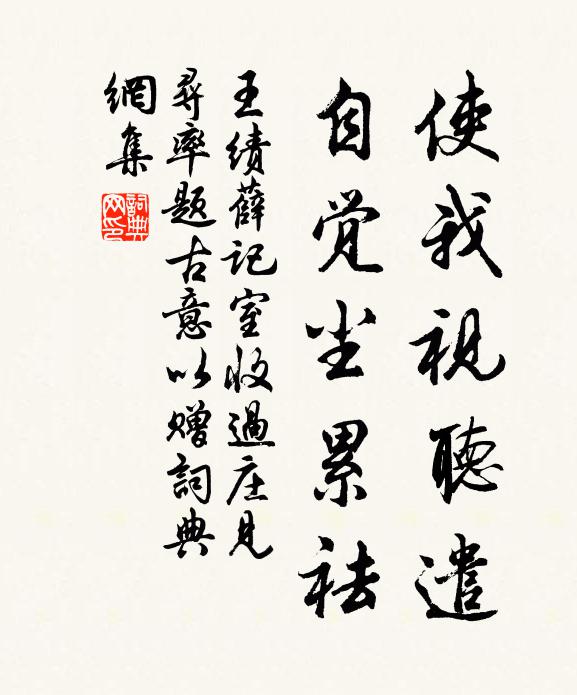 使我視聽遣
自觉尘累祛
王績薛記室收過庄見
尋率题古意以赠詞典
網集
詞典
网印